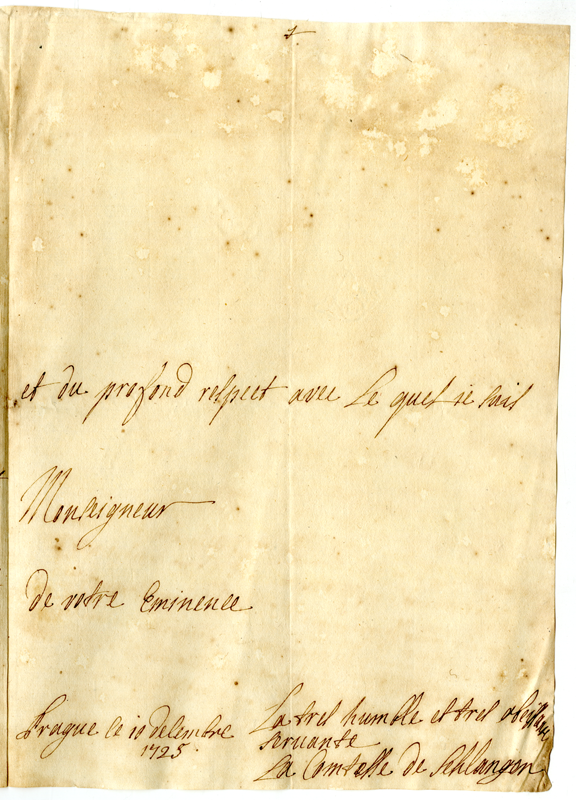 et du profond respect avec le quel ie suis
Monseigneur
de votre Eminence
Prague ce 10 decembre
1725
La tres humble et tres obeissante
servante
La Comtesse de Schlangen